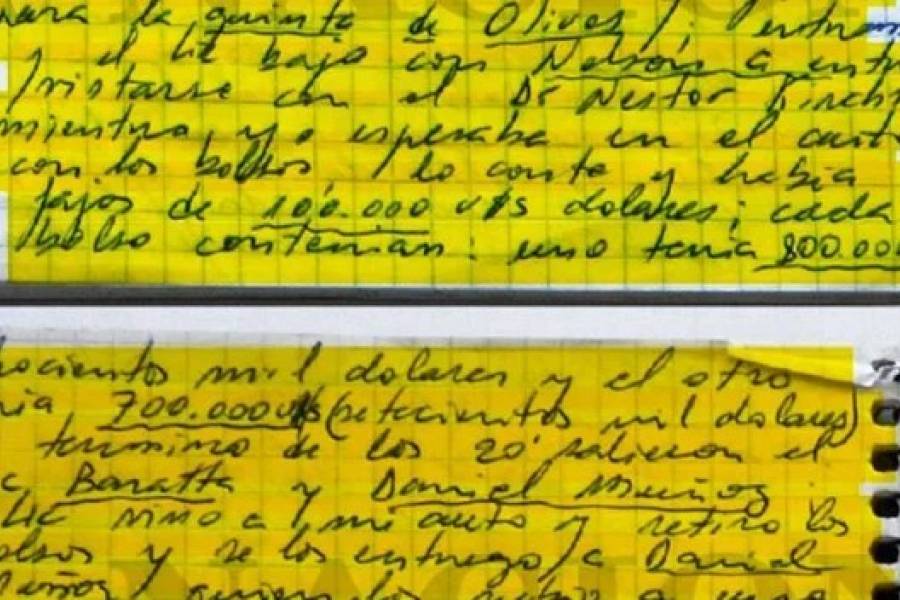 para la quinta de Olivos /: entram
el Lic bajo con Nelson a entr
/vistarse con el Dr Nestor Kirch
mientras, yo esperaba en el auto
con los bolsos / lo conte y habia
fajos de 100.000 u$s dolares; cada
bolso contenian: uno tenia 800.000
hocientos mil dolares y el otro
nia 700.000 u$s (setecientos mil dolares)
termino de los 20' salieron el
c Baratta y Daniel Muñoz
Lic vino a / mi auto y retiro los
olsos y se los entrego / a Daniel
Muñoz quien los